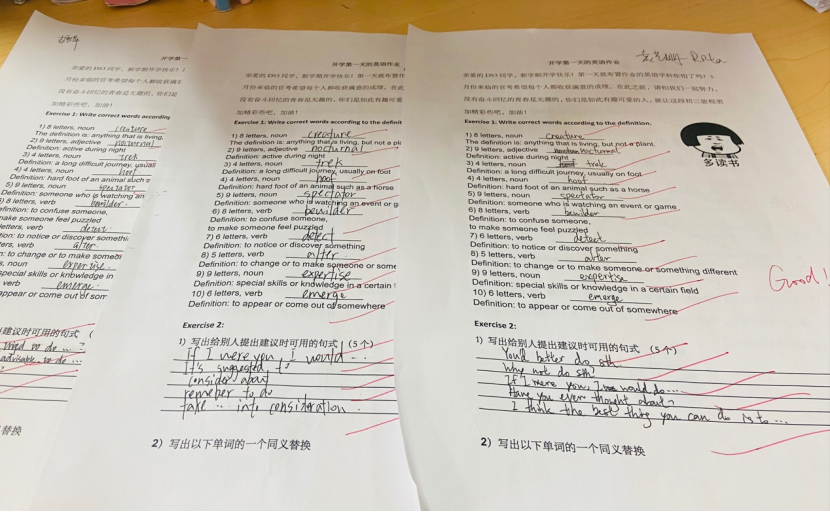 开学第一
亲爱的 DS3 同学，新学期开学快乐！
月份来临的官考希望每个人都收获满意
没有奋斗回忆的青春是无趣的，你们是
加精彩些吧，加油！
Exercise 1: Write correct words according
1) 8 letters, noun creature
The definition is: anything that is living,
2) 9 letters, adjective nocturnal
Definition: active during night
3) 4 letters, noun trek
Definition: a long difficult journey, usuall
4) 4 letters, noun hoof
Definition: hard foot of an animal such a
5) 9 letters, noun spectator
Definition: someone who is watching an
6) 8 letters, verb bewilder.
efinition: to confuse someone,
make someone feel puzzled
etters, verb detect
tion: to notice or discover somethi
ers, verb alter
n: to change or to make someo
s, noun expertise.
special skills or knowledge in
verb emerge.
appear or come out of som
建议时可用的句式
to do ... ?
advisable to do ...
替换
开学第一天的英语作业
亲爱的 DS3 同学，新学期开学快乐！第一天就布置作
月份来临的官考希望每个人都收获满意的成绩，在此
没有奋斗回忆的青春是无趣的，你们是如此有趣可爱
加精彩些吧，加油！
Exercise 1: Write correct words according to the definit
1) 8 letters, noun creature
The definition is: anything that is living, but not a pl
2) 9 letters, adjective nocturnal
Definition: active during night
3) 4 letters, noun trek
Definition: a long difficult journey, usually on foot
4) 4 letters, noun hoof
Definition: hard foot of an animal such as a horse
5) 9 letters, noun spectator
Definition: someone who is watching an event or g
6) 8 letters, verb bewilder
Definition: to confuse someone,
to make someone feel puzzled
7) 6 letters, verb detect
Definition: to notice or discover something
8) 5 letters, verb alter
Definition: to change or to make someone or some
9) 9 letters, noun expertise
Definition: special skills or knowledge in a certain
10) 6 letters, verb emerge
Definition: to appear or come out of somewhere
Exercise 2:
1) 写出给别人提出建议时可用的句式（5个）
If I were you, I would ...
It's suggested to
consider about
remeber to do
take ... into consideration.
2) 写出以下单词的一个同义替换
开学第一天的英语作业
Rita
亲爱的 DS3 同学，新学期开学快乐！第一天就布置作业的英语学科你怕了吗？！
月份来临的官考希望每个人都收获满意的成绩，在此之前，请和我们一起努力，
没有奋斗回忆的青春是无趣的，你们是如此有趣可爱的人，就让这段机三旅程更
加精彩些吧，加油！
Exercise 1: Write correct words according to the definition.
1) 8 letters, noun creature
The definition is: anything that is living, but not a plant.
2) 9 letters, adjective nocturnal
Definition: active during night
3) 4 letters, noun trek
Definition: a long difficult journey, usually on foot
4) 4 letters, noun
Definition: hard foot of an animal such as a horse
5) 9 letters, noun spectator
Definition: someone who is watching an event or game
6) 8 letters, verb bewilder
Definition: to confuse someone,
to make someone feel puzzled
7) 6 letters, verb detect
Definition: to notice or discover something
8) 5 letters, verb alter
Definition: to change or to make someone or something different
9) 9 letters, noun expertise
Definition: special skills or knowledge in a certain field
10) 6 letters, verb emerge
Definition: to appear or come out of somewhere
多读书
Good!
Exercise 2:
1) 写出给别人提出建议时可用的句式（5个）
You'd better do sth.
Why not do sth?
If I were you, I would do...
Have you ever thought about?
I think the best thing you can do is to...
2) 写出以下单词的一个同义替换